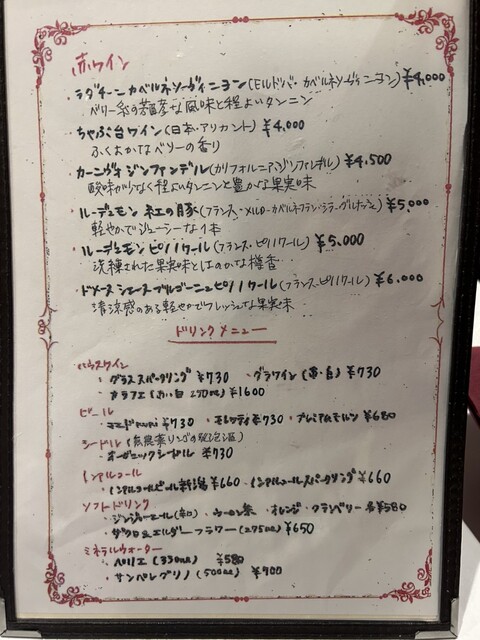 赤ワイン
・ラダチーニ カベルネソーヴィニヨン(モルドバ・カベルネソーヴィニヨン) ¥4,000
ベリー系の芳醇な風味と程よいタンニン
・ちゃぶ台ワイン(日本・アリカント) ¥4,000
ふくよかなベリーの香り
・カーニヴォ ジンファンデル(カリフォルニア・ジンファンデル) ¥4,500
酸味が少なく程よいタンニンと豊かな果実味
・ルーデュモン 紅の豚(フランス・メルロー・カベルネフラン・シラー・グルナッシュ) ¥5,000
軽やかでジューシーな1本
・ルーデュモン ピノノワール(フランス・ピノノワール) ¥5,000
洗練された果実味とほのかな樽香
・ドメーヌ シエーヌ ブルゴーニュピノノワール(フランス・ピノノワール) ¥6,000
清涼感のある軽やかでフレッシュな果実味
ドリンクメニュー
ハウスワイン
・グラススパークリング ¥730 ・グラスワイン(赤・白) ¥730
・カラフェ(赤・白 270ml) ¥1600
ビール
¥730 ・モレッティ ¥730 ・プレミアムモルツ ¥680
シードル(無農薬リンゴの発泡酒)
・オーガニックシードル ¥730
ノンアルコール
・ノンアルコールビール ¥660 ・ノンアルコールスパークリング ¥660
ソフトドリンク
・ジンジャーエール(辛口) ・ウーロン茶 ・オレンジ ・クランベリー 各¥580
・ザクロ&エルダーフラワー(275ml) ¥650
ミネラルウォーター
・ペリエ(330ml) ¥580
・サンペレグリノ(500ml) ¥700